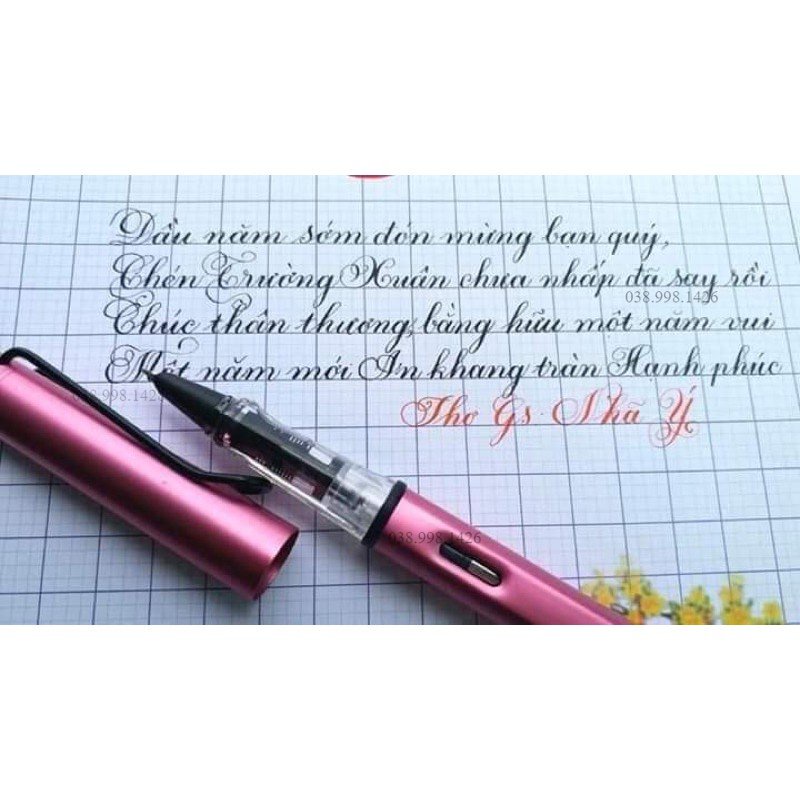 Đầu năm sớm đón mừng bạn quý,
Chén Trường Xuân chưa nhấp đã say rồi
038.998.1426
Chúc thân thương, bằng hữu một năm vui
Một năm mới An khang tràn Hạnh phúc
998.1426
Thơ Gs. Nhã Ý
038.998.1426